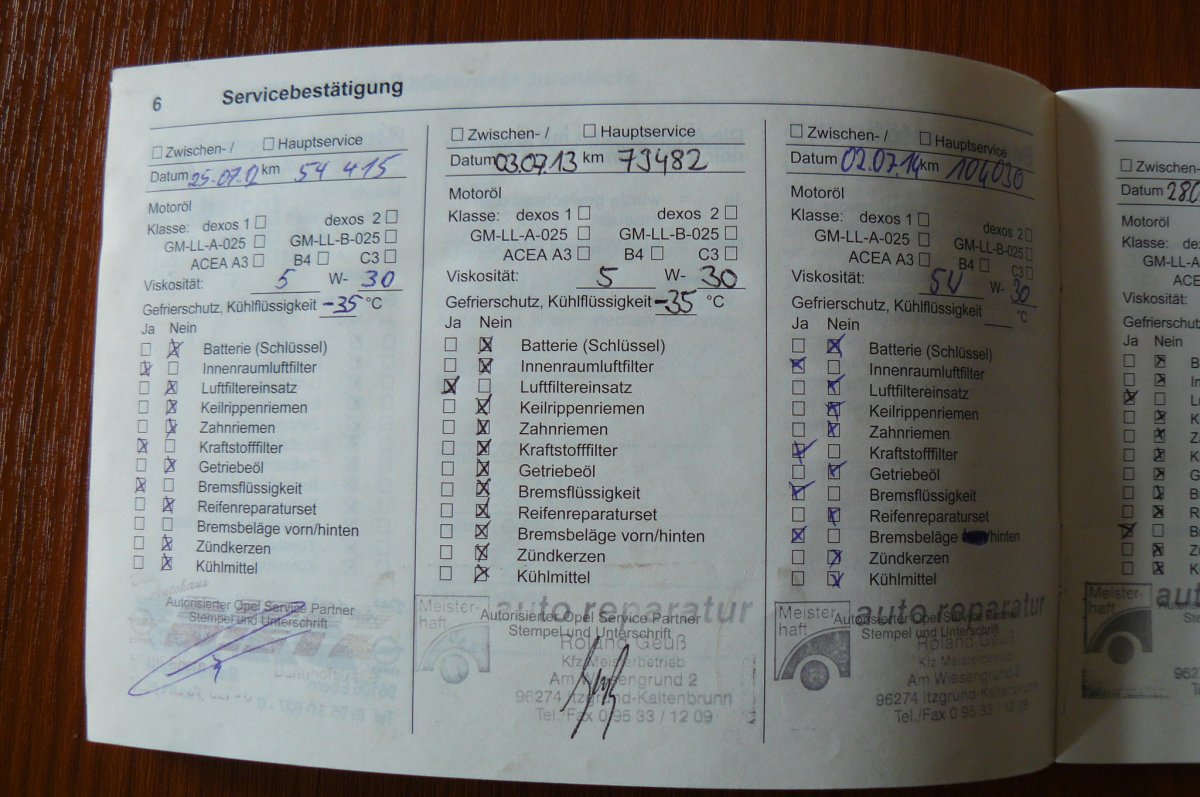 6 Servicebestätigung
☐ Zwischen- / ☐ Hauptservice
Datum 25.07.12 km 54 415
Motoröl
Klasse: dexos 1 ☐ dexos 2 ☐
GM-LL-A-025 ☐ GM-LL-B-025 ☐
ACEA A3 ☐ B4 ☐ C3 ☐
Viskosität: 5 W- 30
Gefrierschutz, Kühlflüssigkeit -35 °C
Ja Nein
☐ ☒ Batterie (Schlüssel)
☒ ☐ Innenraumluftfilter
☐ ☒ Luftfiltereinsatz
☐ ☒ Keilrippenriemen
☐ ☒ Zahnriemen
☒ ☐ Kraftstofffilter
☐ ☒ Getriebeöl
☒ ☐ Bremsflüssigkeit
☐ ☒ Reifenreparaturset
☐ ☐ Bremsbeläge vorn/hinten
☐ ☒ Zündkerzen
☐ ☒ Kühlmittel
Autorisierter Opel Service Partner
Stempel und Unterschrift
☐ Zwischen- / ☐ Hauptservice
Datum 03.07.13 km 79482
Motoröl
Klasse: dexos 1 ☐ dexos 2 ☐
GM-LL-A-025 ☐ GM-LL-B-025 ☐
ACEA A3 ☐ B4 ☐ C3 ☐
Viskosität: 5 W- 30
Gefrierschutz, Kühlflüssigkeit -35 °C
Ja Nein
☐ ☒ Batterie (Schlüssel)
☐ ☒ Innenraumluftfilter
☒ ☐ Luftfiltereinsatz
☐ ☒ Keilrippenriemen
☐ ☒ Zahnriemen
☐ ☒ Kraftstofffilter
☐ ☒ Getriebeöl
☐ ☒ Bremsflüssigkeit
☐ ☒ Reifenreparaturset
☐ ☒ Bremsbeläge vorn/hinten
☐ ☒ Zündkerzen
☐ ☒ Kühlmittel
Meister-
haft
auto reparatur
Autorisierter Opel Service Partner
Stempel und Unterschrift
Roland Geuß
Kfz Meisterbetrieb
Am Wiesengrund 2
96274 Itzgrund-Kaltenbrunn
Tel./Fax 0 95 33 / 12 09
☐ Zwischen- / ☐ Hauptservice
Datum 02.07.14 km 104030
Motoröl
Klasse: dexos 1 ☐ dexos 2 ☐
GM-LL-A-025 ☐ GM-LL-B-025 ☐
ACEA A3 ☐ B4 ☐ C3 ☐
Viskosität: 5W W- 30
Gefrierschutz, Kühlflüssigkeit °C
Ja Nein
☐ ☒ Batterie (Schlüssel)
☒ ☐ Innenraumluftfilter
☐ ☒ Luftfiltereinsatz
☐ ☒ Keilrippenriemen
☐ ☒ Zahnriemen
☒ ☐ Kraftstofffilter
☐ ☒ Getriebeöl
☒ ☐ Bremsflüssigkeit
☐ ☒ Reifenreparaturset
☒ ☐ Bremsbeläge /hinten
☐ ☒ Zündkerzen
☐ ☒ Kühlmittel
Meister-
haft
auto reparatur
Autorisierter Opel Service Partner
Stempel und Unterschrift
Roland Geuß
Kfz Meisterbetrieb
Am Wiesengrund 2
96274 Itzgrund-Kaltenbrunn
Tel./Fax 0 95 33 / 12 09
☐ Zwischen-
Datum
Motoröl
Klasse:
GM-LL-A
Viskosität:
Ja Nein
Meister-
haft